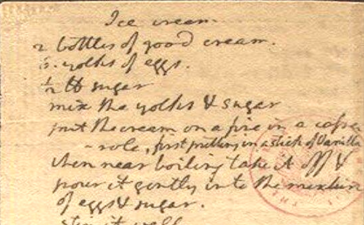 Ice cream.
2 bottles of good cream.
6. yolks of eggs.
1/2 lb sugar
mix the yolks & sugar
put the cream on a fire in a casse
- role, first putting in a stick of Vanilla.
when near boiling take it off &
pour it gently into the mixture
of eggs & sugar.
stir it well.